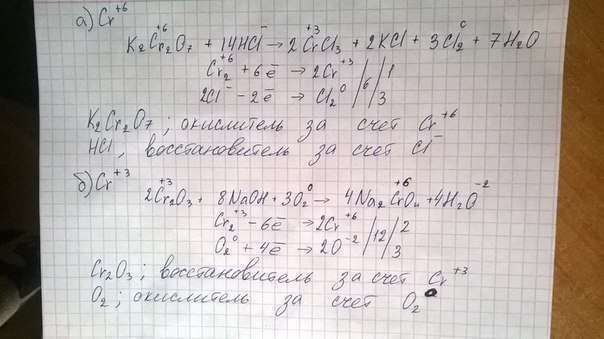 а) Cr⁺⁶
K₂Cr₂⁺⁶O₇ + 14HCl⁻ → 2Cr⁺³Cl₃ + 2KCl + 3Cl₂⁰ + 7H₂O
Cr₂⁺⁶ + 6ē → 2Cr⁺³ | 6 | 1
2Cl⁻ − 2ē → Cl₂⁰ | | 3
K₂Cr₂O₇; окислитель за счет Cr⁺⁶
HCl, восстановитель за счет Cl⁻
б) Cr⁺³
2Cr₂⁺³O₃ + 8NaOH + 3O₂⁰ → 4Na₂Cr⁺⁶O₄ + 4H₂O⁻²
Cr₂⁺³ − 6ē → 2Cr⁺⁶ | 12 | 2
O₂⁰ + 4ē → 2O⁻² | | 3
Cr₂O₃; восстановитель за счет Cr⁺³
O₂; окислитель за счет O₂⁰